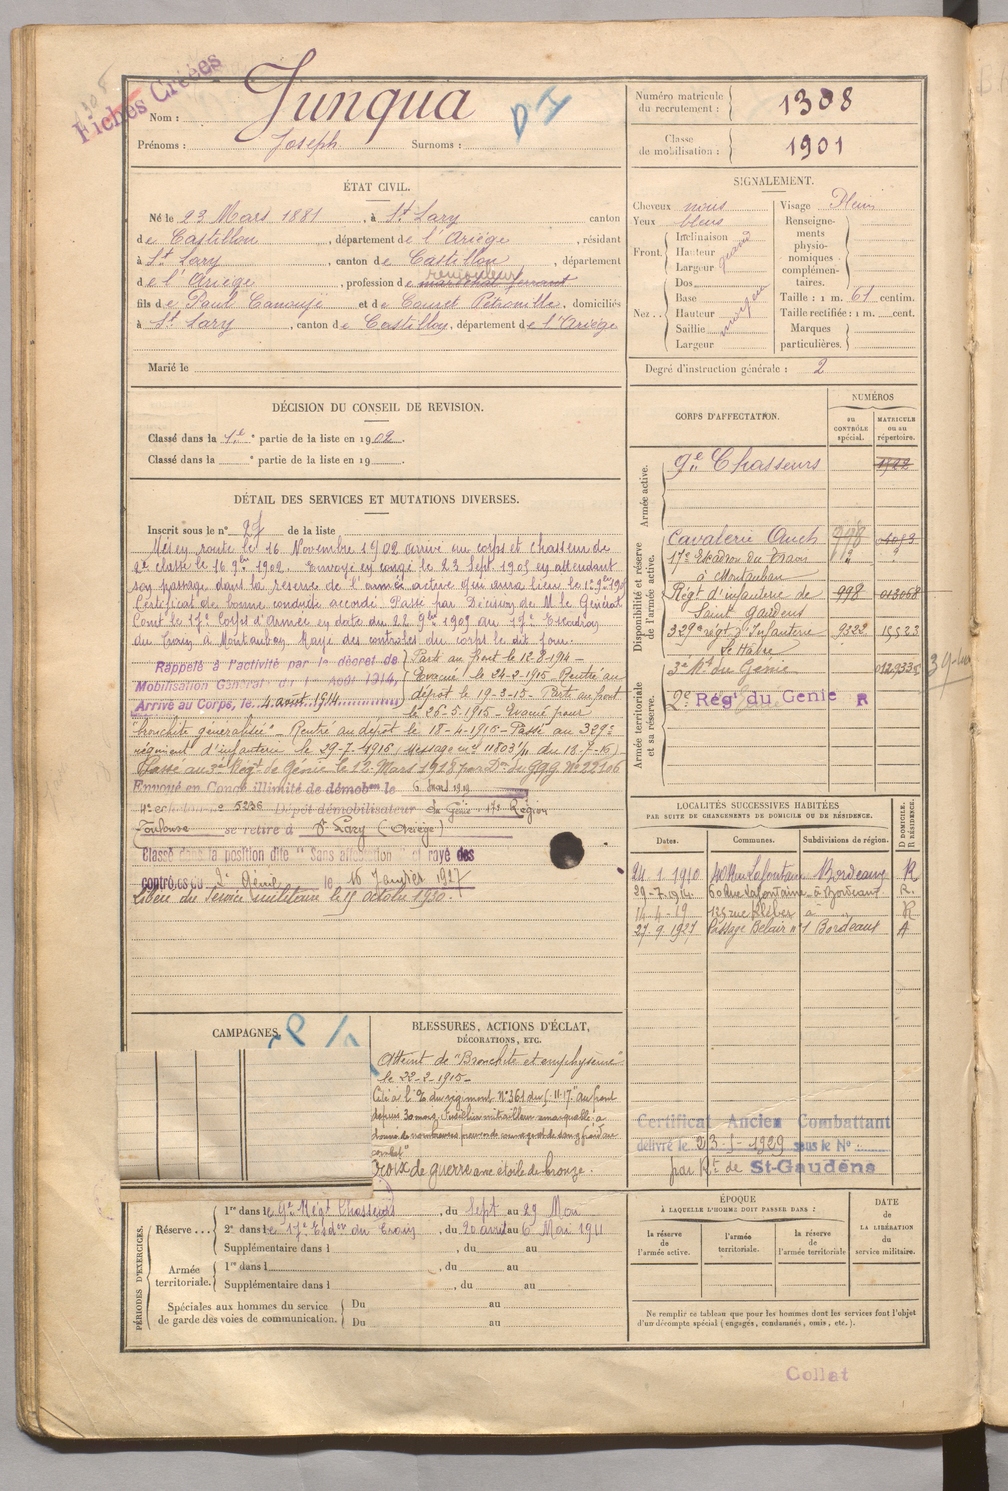 Fiches Créées
Nom : Junqua
Prénoms : Joseph Surnoms :
Numéro matricule du recrutement : 1308
Classe de mobilisation : 1901
ÉTAT CIVIL.
Né le 23 Mars 1881, à St Lary canton
de Castillon, département de l'Ariège, résidant
à St Lary, canton de Castillon, département
de l'Ariège, profession de maréchal ferrant
fils de Paul Canouge et de Couret Pétronille, domiciliés
à St Lary, canton de Castillon, département de l'Ariège
Marié le
SIGNALEMENT.
Cheveux noirs
Yeux bleus
Front. Inclinaison
Hauteur grand
Largeur
Nez.. Dos
Base
Hauteur moyen
Saillie
Largeur
Visage Plein
Renseignements physionomiques complémentaires.
Taille : 1 m. 61 centim.
Taille rectifiée : 1 m. cent.
Marques particulières.
Degré d'instruction générale : 2
DÉCISION DU CONSEIL DE REVISION.
Classé dans la 1re partie de la liste en 1902.
Classé dans la e partie de la liste en 19
DÉTAIL DES SERVICES ET MUTATIONS DIVERSES.
Inscrit sous le n° de la liste
Mis en route le 16 Novembre 1902 arrivé au corps et chasseur de
2e classe le 16 9bre 1902. Envoyé en congé le 23 Sept 1905 en attendant
son passage dans la réserve de l'armée active qui aura lieu le 1er 9bre 1905
Certificat de bonne conduite accordé. Passé par Décision de M. le Général
Comt le 17e Corps d'Armée en date du 22 9bre 1909 au 17e Escadron
du Train à Montauban. Rayé des contrôles du corps le dit jour.
Rappelé à l'activité par le décret de
Mobilisation Général du 1er Août 1914,
Arrivé au Corps, le 4 août 1914
Parti au front le 12-8-1914 -
Evacué le 24-2-1915. Rentré au
dépôt le 19-3-15. Parti au front
le 26-5-1915 - Evacué pour
"bronchite généralisée" - Rentré au dépôt le 18-4-1915 - Passé au 329e
régiment d'infanterie le 29-7-1916 (message n° 11803 1/11 du 18-7-16)
Passé au 3e Régt de Génie le 12 Mars 1918 par Don du GQG No 22106
Envoyé en Congé illimité de démobon le 6 Mars 1919
4e echelon n° 5236 Dépôt démobilisateur du Génie 17e Région
Toulouse se retire à St Lary (Ariège)
Classé dans la position dite "Sans affectation" et rayé des
contrôles du 2e Génie le 16 Janvier 1927
Libéré du Service militaire le 15 octobre 1930.
CORPS D'AFFECTATION.
NUMÉROS
au CONTRÔLE spécial.
MATRICULE ou au répertoire.
Armée active.
9e Chasseurs
Disponibilité et réserve de l'armée active.
Cavalerie Auch
17e Escadron du Train
à Montauban
Régt d'infanterie de 998 013068
Saint Gaudens
329e régt d'Infanterie 9322 15523
Le Havre
Armée territoriale et sa réserve.
3e Rt du Génie
2e Régt du Genie R
LOCALITÉS SUCCESSIVES HABITÉES
PAR SUITE DE CHANGEMENTS DE DOMICILE OU DE RÉSIDENCE.
Dates. Communes. Subdivisions de région. D DOMICILE. R RÉSIDENCE.
24.1.1910 40 Rue Lafontaine Bordeaux R
29-7-1914 60 Rue Lafontaine - à Bordeaux R.
14-4-19 135 rue Kléber à " R
27.9.1927 Passage Bélair n°1 Bordeaux A
CAMPAGNES.
BLESSURES, ACTIONS D'ÉCLAT,
DÉCORATIONS, ETC.
Atteint de "Bronchite et emphysème"
le 22-2-1915 -
Cité à l'O. du régiment N° 361 du 5.11.17 "au front
depuis 30 mois, Fusilier mitrailleur remarquable a
donné de nombreuses preuves de courage et de sang froid au
combat"
Croix de guerre avec étoile de bronze.
Certificat Ancien Combattant
délivré le 23-1-1929 sous le No
par Rt de St-Gaudens
PÉRIODES D'EXERCICES.
Réserve... 1re dans le 9e Régt Chasseurs, du Sept au 29 Mai
2e dans le 17e Esdon du Train, du 20 avril au 6 Mai 1911
Supplémentaire dans l , du au
Armée territoriale. 1re dans l , du au
Supplémentaire dans l , du au
Spéciales aux hommes du service de garde des voies de communication. Du au
Du au
ÉPOQUE
À LAQUELLE L'HOMME DOIT PASSER DANS :
la réserve de l'armée active.
l'armée territoriale.
la réserve de l'armée territoriale
DATE de LA LIBÉRATION du service militaire.
Ne remplir ce tableau que pour les hommes dont les services font l'objet
d'un décompte spécial (engagés, condamnés, omis, etc.).
Collat